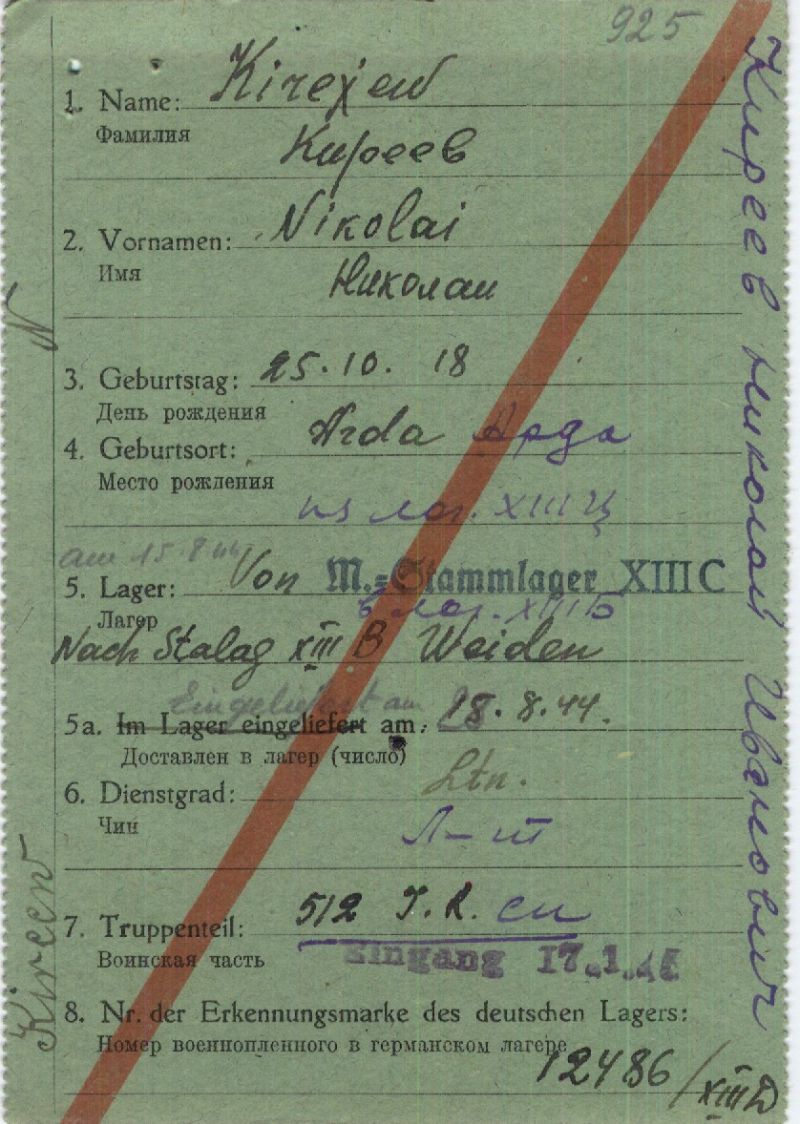 925
1. Name: Kirejew
Фамилия
Киреев
2. Vornamen: Nikolai
Имя
Николаи
3. Geburtstag: 25.10. 18
День рождения
4. Geburtsort: Arda Арда
Место рождения
из лаг. XIII Ц
am 15.8
5. Lager: Von M.=Stammlager XIII C
Лагер
в лаг. XIII Б
Nach Stalag XIII B Weiden
Eingeliefert am
5a. Im Lager eingeliefert am: 18.8.44.
Доставлен в лагер (число)
6. Dienstgrad: Ltn.
Чин
Л-т
7. Truppenteil: 512 I.R. сп
Воинская часть
Eingang 17.1.45
8. Nr. der Erkennungsmarke des deutschen Lagers:
Номер военнопленного в германском лагере
12486/XIII D
Киреев Николай Иванович
N
Kireew